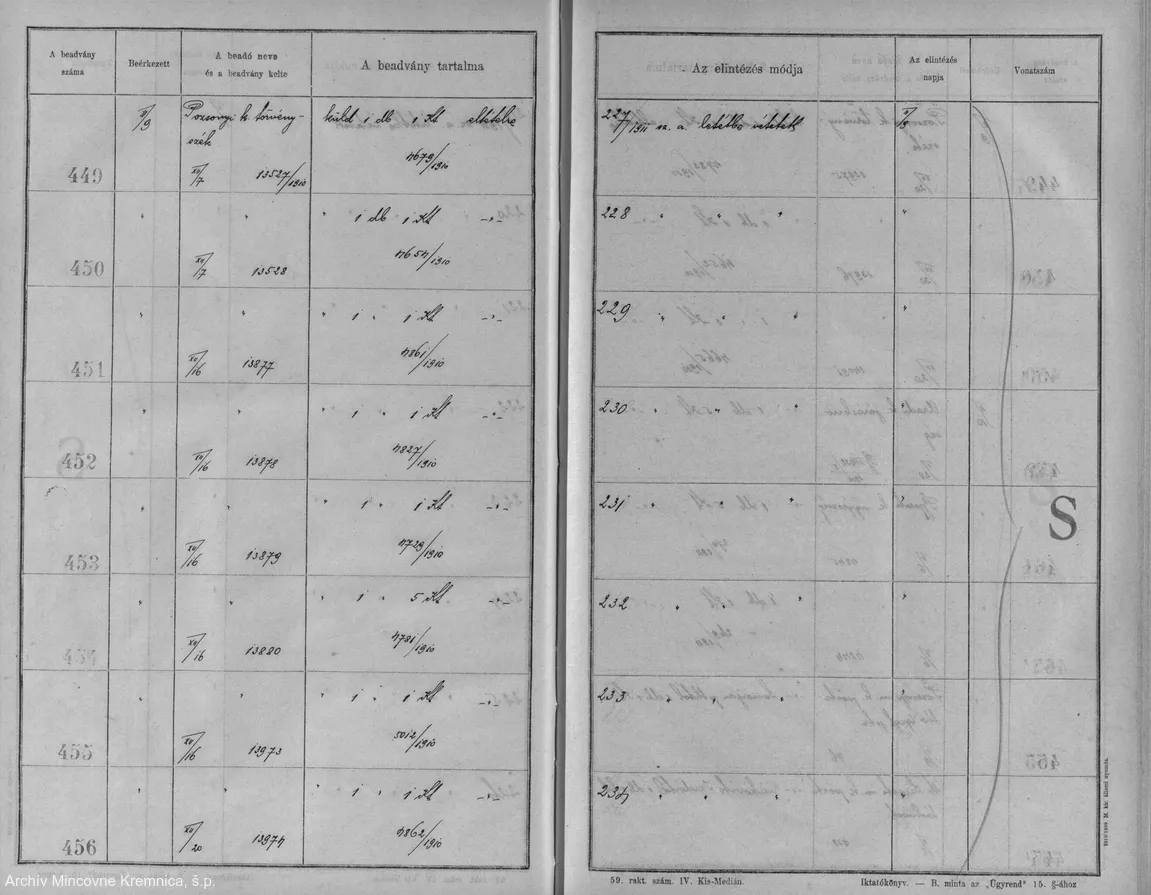 A beadvány száma
Beérkezett
A beadó neve és a beadvány kelte
A beadvány tartalma
Az elintézés módja
Az elintézés napja
Vonatszám
449 II/9 Pozsonyi k törvény- küld 1 db 1 Kt eltételre 227/1911 sz. a. letétbe vétetett II/9
szék
XII/7 13527/1910 4679/1910
450 " " " 1 db 1 Kt -"- 228 " " " "
XII/7 13528 4654/1910
451 " " " 1 " 1 Kt -"- 229 " " " "
XII/16 13877 4861/1910
452 " " " 1 " 1 Kt -"- 230 " " " "
XII/16 13878 4827/1910
453 " " " 1 " 1 Kt -"- 231 " " "
XII/16 13879 4729/1910
454 " " " 1 " 5 Kt -"- 232 " " " "
XII/16 13880 4781/1910
455 " " " 1 " 1 Kt -"- 233 " " " "
XII/16 13973 5012/1910
456 " " 1 " 1 Kt -"- 234 " " " "
XII/20 13974 4862/1910
S
59. rakt. szám. IV. Kis-Medián.
Iktatókönyv. — B. minta az „Ügyrend" 15. §-ához
Archív Mincovne Kremnica, š.p.